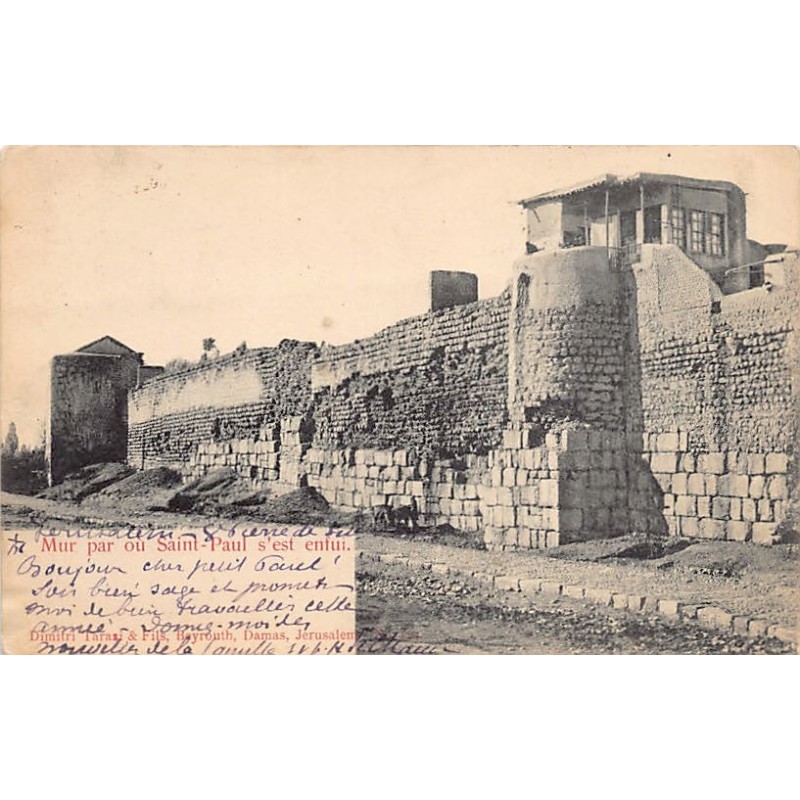 Jerusalem - St Pierre de
Mur par où Saint-Paul s'est enfui.
Bonjour cher petit Paul!
Sois bien sage et promets
moi de bien travailler cette
année - Donne-moi des
Dimitri Tarazi & Fils, Beyrouth, Damas, Jérusalem
nouvelles de la famille